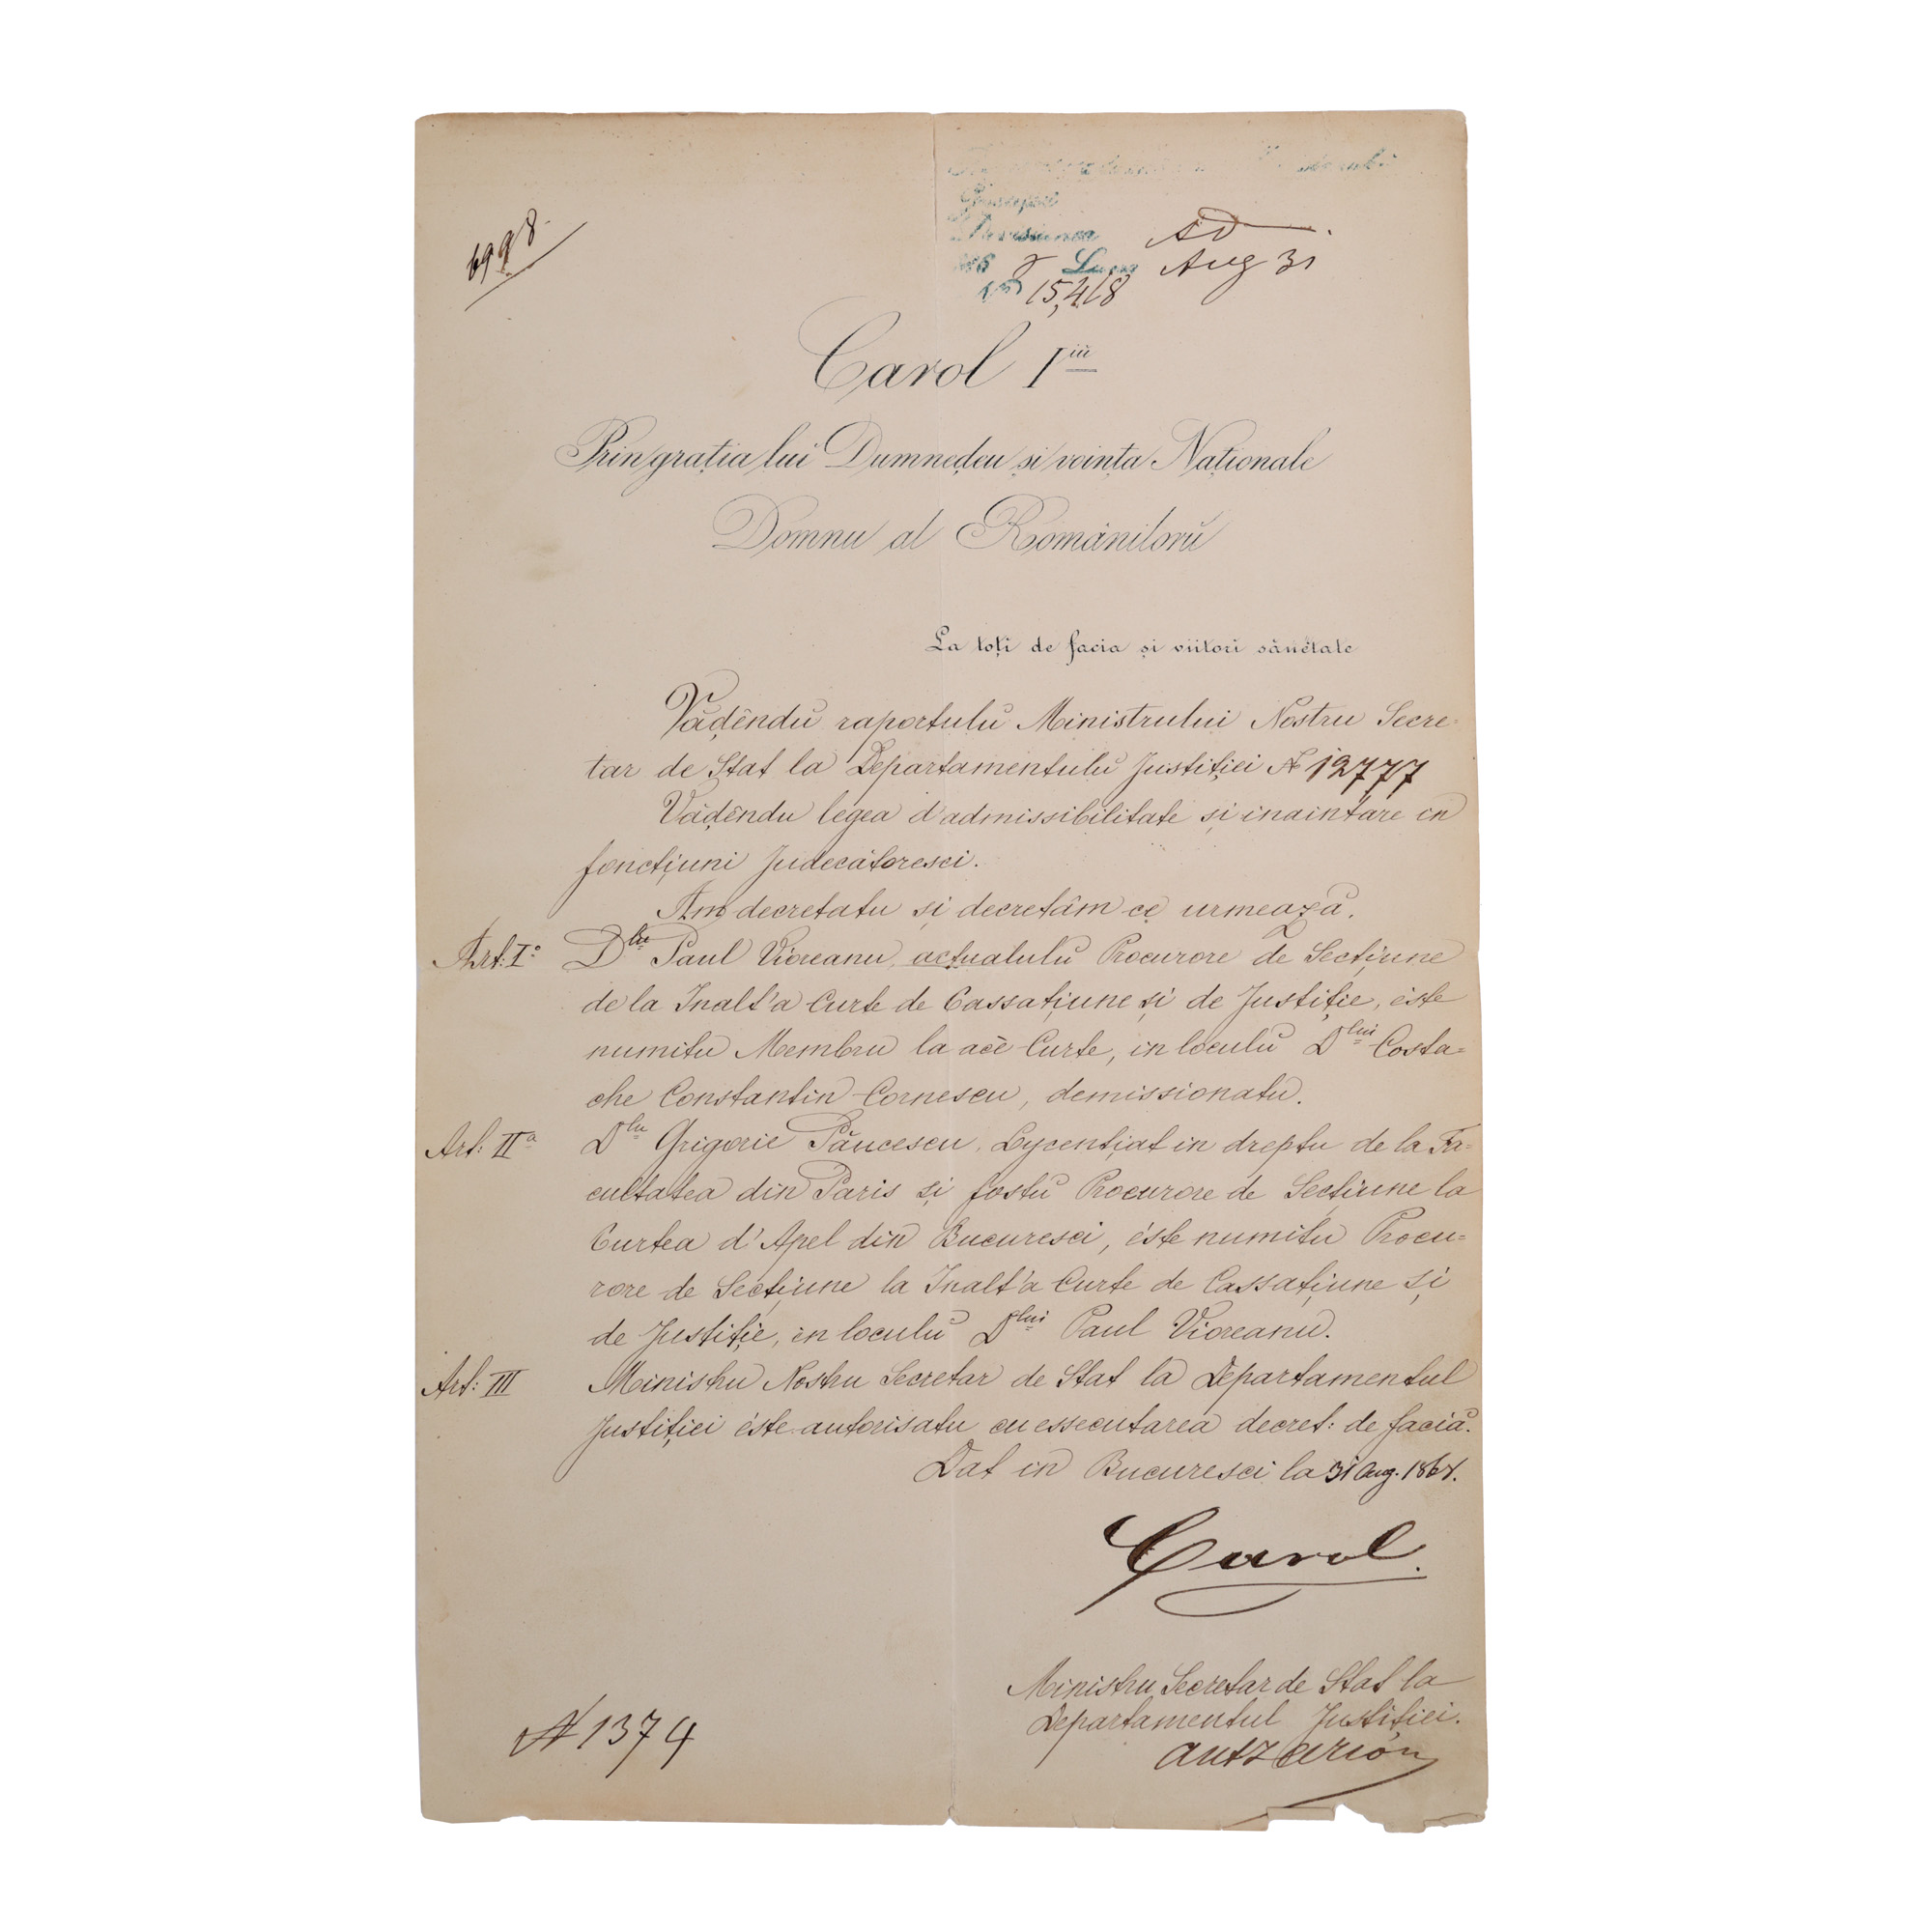 6998
Aug 31
15,418
Carol I iu
Prin grația lui Dumnedeu și voința Naționale
Domnu al Românilorŭ
La toți de facia și viitori sănětate
Vădêndŭ raportulŭ Ministrului Nostru Secre-
tar de Stat la Departamentulŭ Justiției № 12777
Vădêndu legea d'admissibilitate și inaintare in
foncțiuni Judecătoresci.
Am decretatu și decretăm ce urmează.
Art: I° Dlu Paul Vioreanu, actualulŭ Procurore de Secțiune
de la Inalt'a Curte de Cassațiune și de Justiție, éste
numitu Membru la acé Curte, in loculŭ Dlui Costa=
che Constantin Cornescu, demissionatu.
Art: IIa Dlu Grigorie Păucescu, Lycențiat in dreptu de la Fa=
cultatea din Paris și fostŭ Procurore de Secțiune la
Curtea d'Apel din Bucuresci, éste numitu Procu=
rore de Secțiune la Inalt'a Curte de Cassațiune și
de Justiție, in loculŭ Dlui Paul Vioreanu.
Art: III Ministru Nostru Secretar de Stat la Departamentul
Justiției éste autorisatu cu essecutarea decret: de faciă.
Dat in Bucuresci la 31 Aug. 1868.
Carol.
Ministru Secretar de Stat la
Departamentul Justiției.
№ 1374